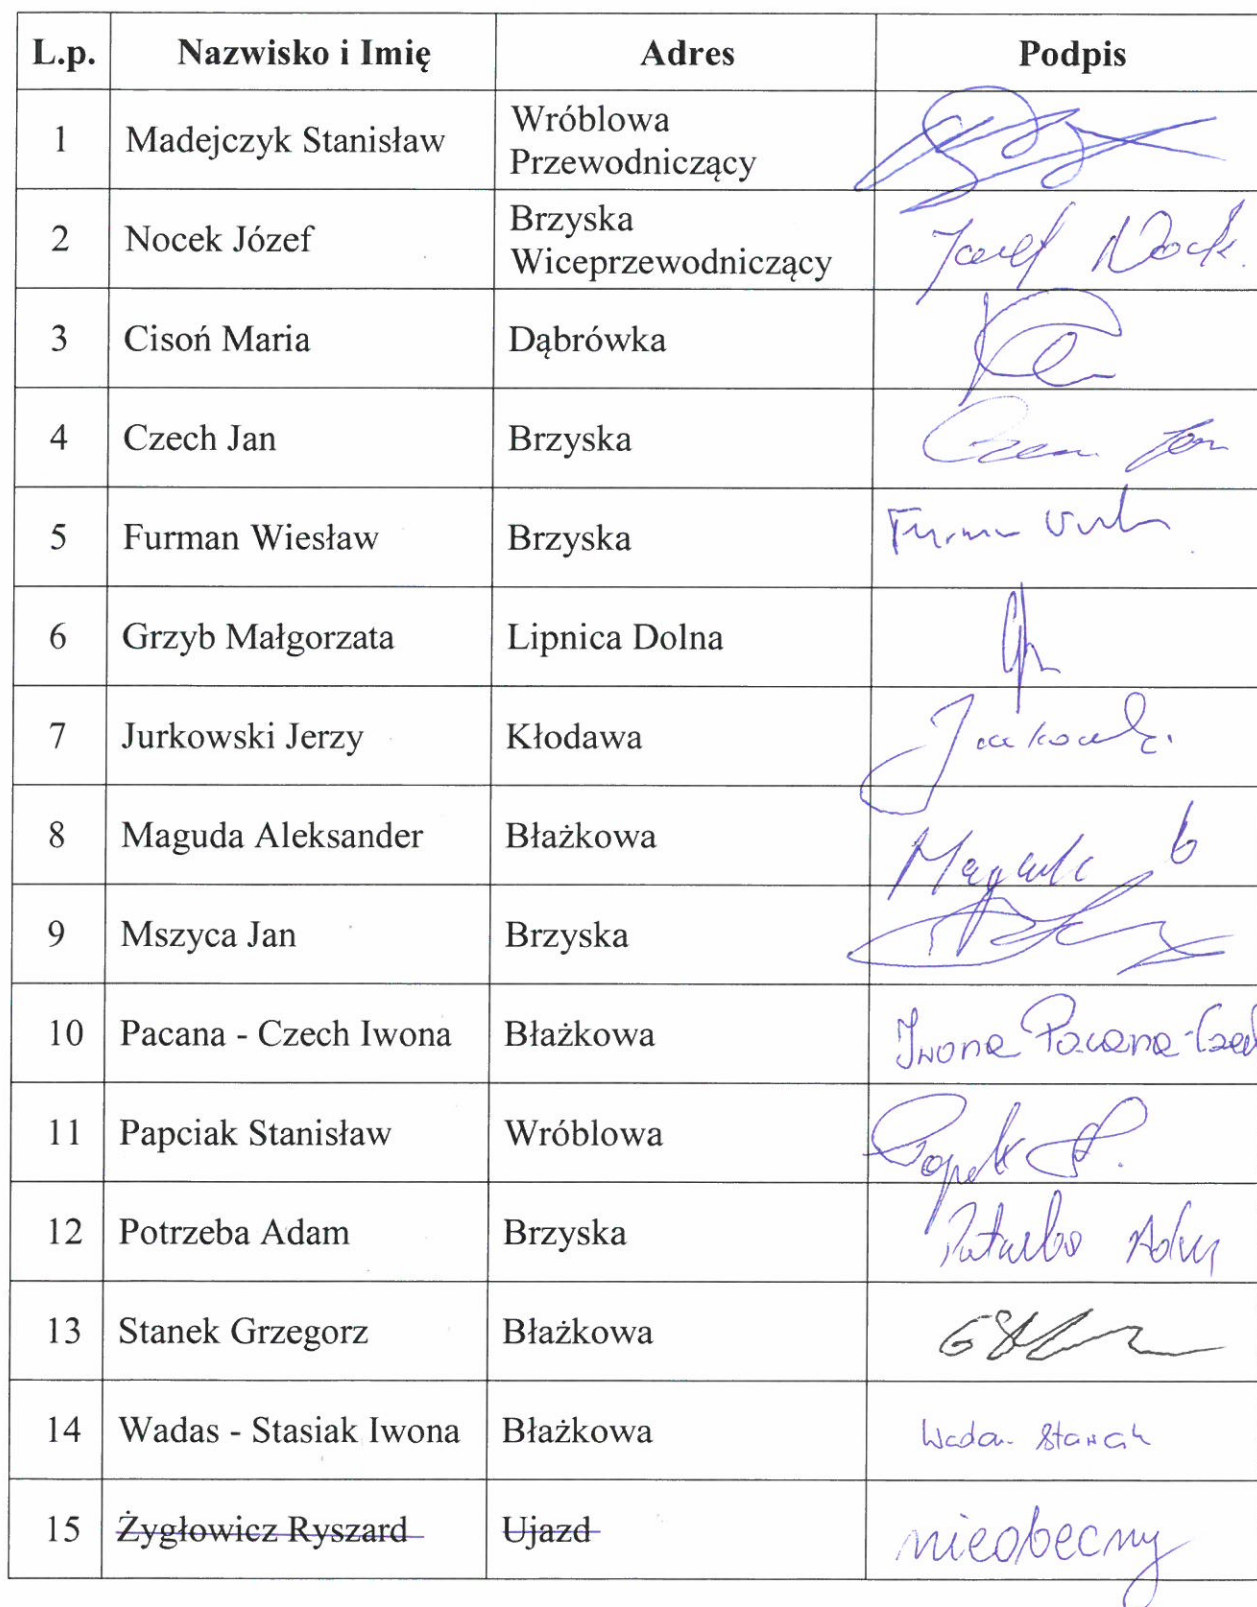 L.p. Nazwisko i Imię Adres Podpis
1 Madejczyk Stanisław Wróblowa
Przewodniczący
2 Nocek Józef Brzyska
Wiceprzewodniczący Józef Nocek
3 Cisoń Maria Dąbrówka
4 Czech Jan Brzyska Czech Jan
5 Furman Wiesław Brzyska Furman
6 Grzyb Małgorzata Lipnica Dolna
7 Jurkowski Jerzy Kłodawa Jurkowski
8 Maguda Aleksander Błażkowa Maguda
9 Mszyca Jan Brzyska
10 Pacana - Czech Iwona Błażkowa Iwona Pacana-Czech
11 Papciak Stanisław Wróblowa
12 Potrzeba Adam Brzyska Potrzeba Adam
13 Stanek Grzegorz Błażkowa
14 Wadas - Stasiak Iwona Błażkowa Wadas Stasiak
15 Żygłowicz Ryszard Ujazd nieobecny